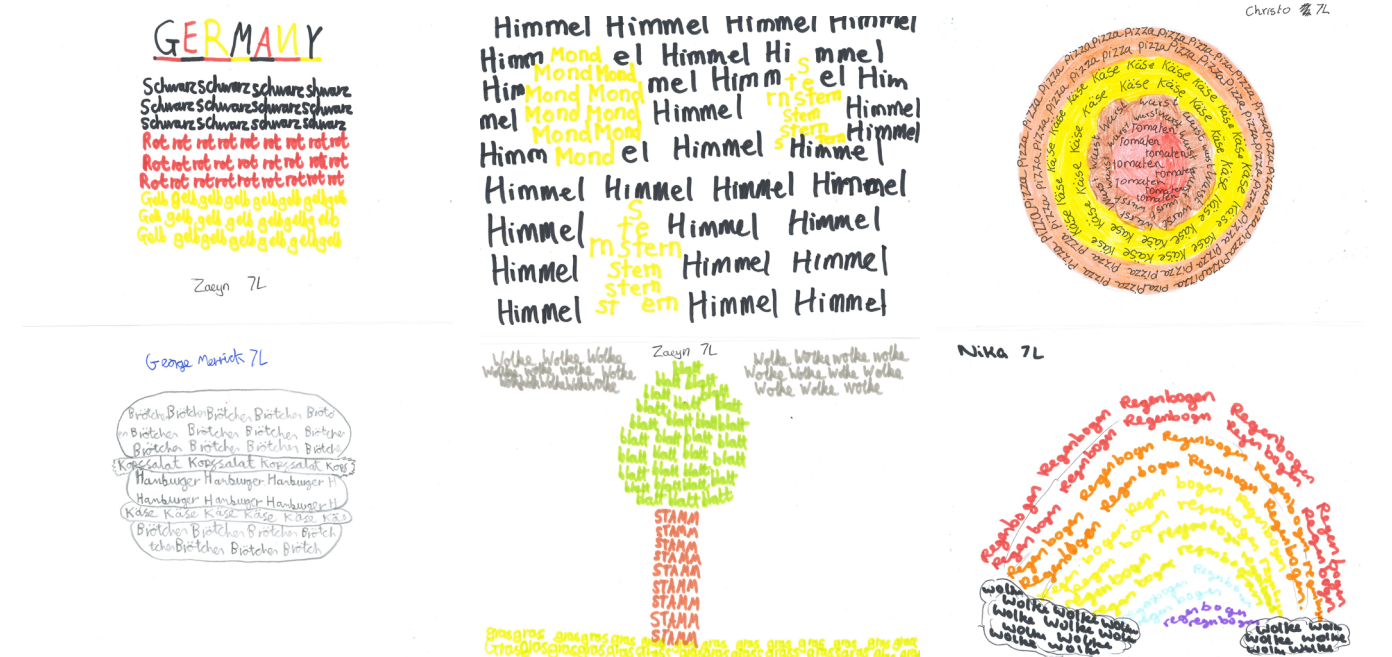 GERMANY
Schwarz schwarz schwarz shwarz
Schwarz Schwarz schwarz schwarz
Schwarz Schwarz schwarz schwarz
Rot rot rot rot rot rot rot rot rot
Rot rot rot rot rot rot rot rot rot
Rot rot rot rot rot rot rot rot rot
Gelb gelb gelb gelb gelb gelb gelb
Gelb gelb gelb gelb gelb gelb elb
Gelb gelb gelb gelb gelb gelb gelb
Zaeyn 7L
Himmel Himmel Himmel Himmel
Himm Mond el Himmel Hi s mmel
Him Mond Mond mel Himm te el Him
Mond Mond rn stern
mel Mond Mond Himmel Stern Himmel
Mond Mond stern Himmel
Himm Mond el Himmel s tern Himmel
Himmel Himmel Himmel Himmel
S
Himmel te Himmel Himmel
rn stern
Himmel stern Himmel Himmel
stern
Himmel st ern Himmel Himmel
Christo 7L
Pizza Pizza Pizza Pizza Pizza Pizza
Käse Käse Käse Käse Käse Käse
wurst wurst wurst wurst
Tomaten
Tomaten
tomaten
Tomaten
tomaten
Tomaten
tomaten
tomaten
George Merrick 7L
Brötchen Brötchen Brötchen Brötchen Brötc
en Brötchen Brötchen Brötchen Brötchen
Brötchen Brötchen Brötchen Brötche
Kopssalat Kopssalat Kopssalat Kops
Hanburger Hanburger Hanburger H
Hanburger Hanburger Hanburger H
Käse Käse Käse Käse Käse Käs
Brötchen Brötchen Brötchen Brötch
tchen Brötchen Brötchen Brötch
Zaeyn 7L
Wolke Wolke Wolke
Wolke Wolke Wolke Wolke
Wolke Wolke wolke wolke
Wolke Wolke Wolke Wolke
Wolke Wolke Wolke
blatt
blatt blatt
blatt blatt
blatt blatt blatt
blatt blatt blatt
blatt blatt blatt blatt
blatt blatt blatt
blatt blatt blatt
blatt blatt blatt
blatt blatt blatt
STAMM
STAMM
STAMM
STAMM
STAMM
STAMM
STAMM
STAMM
STAMM
gras gras gras gras gras gras gras gras gras gras gras gras
Gras gras gras gras gras gras gras gras gras gras gras
Nika 7L
Regenbogen Regenbogen Regenbogen Regenbogen
Regenbogen Regenbogen Regenbogn Regenbogen Regenbogen
Regenbogen Regenbogen Regenbogen Regenbogen
Regenbogen Regenbogen Regenbogen Regenbogen
Regen bogen regen
regen bogen regenbogen
regenbogen
Regenbogen
regenbogen
regenbogen
Wolke
Wolke Wolke
Wolke Wolke Wolke
Wolke Wolke
Wolke Wolke
Wolke Wolke
Wolke Wolke